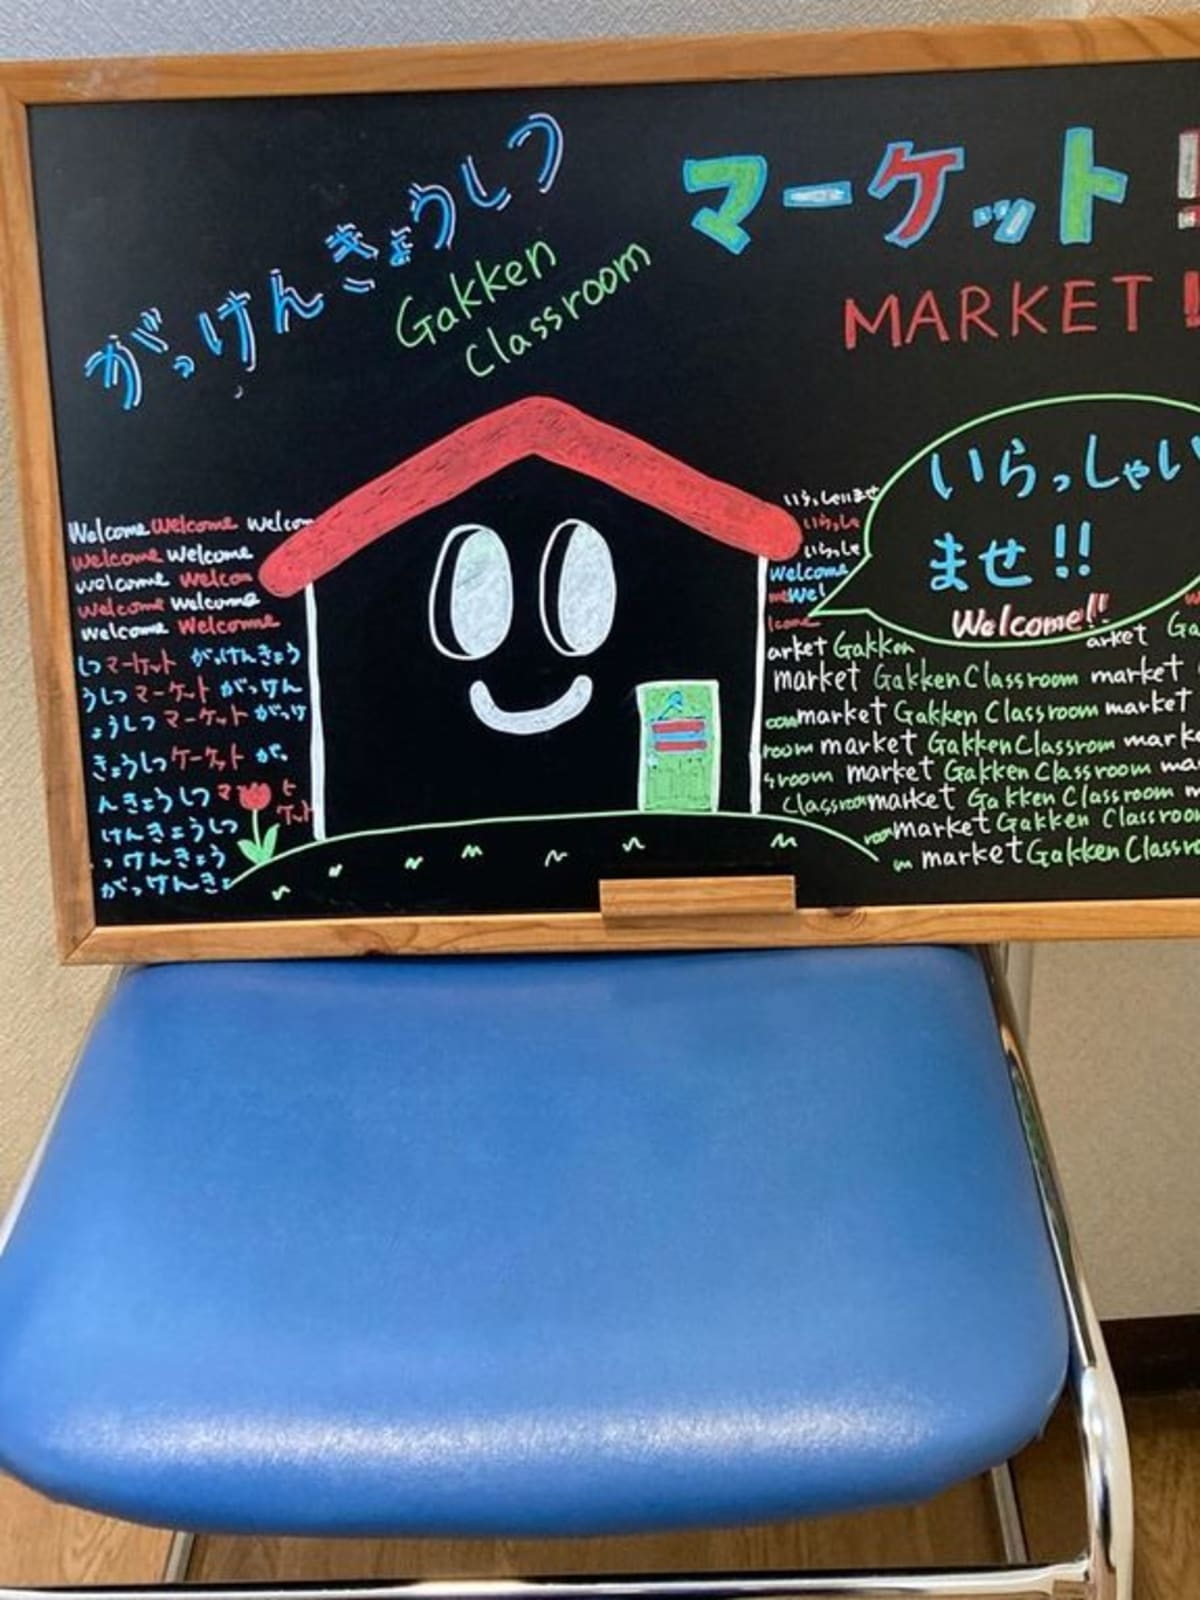 がっけんきょうしつ
Gakken
Classroom
マーケット!
MARKET!
いらっしゃい
ませ!!
Welcome!!
Welcome Welcome Welcom
Welcome Welcome
welcome Welco
Welcome Welcome
welcome Welcome
しつマーケット がっけんきょう
うしつ マーケット がっけん
ょうしつ マーケット がっけ
きょうしつケーケット が
んきょうしつ マ ト
ケット
けんきょうしつ
っけんきょう
がっけんきょ
いらっしゃいませ
いらっしゃ
いらっしゃ
Welcome
Wel
lcome
arket Gakken
arket Ga
market Gakken Classroom market
market Gakken Classroom market
room market Gakken Classrom marke
sroom market Gakken Classroom ma
Classroom market Gakken Classroom m
room market Gakken Classroo
m market Gakken Classro